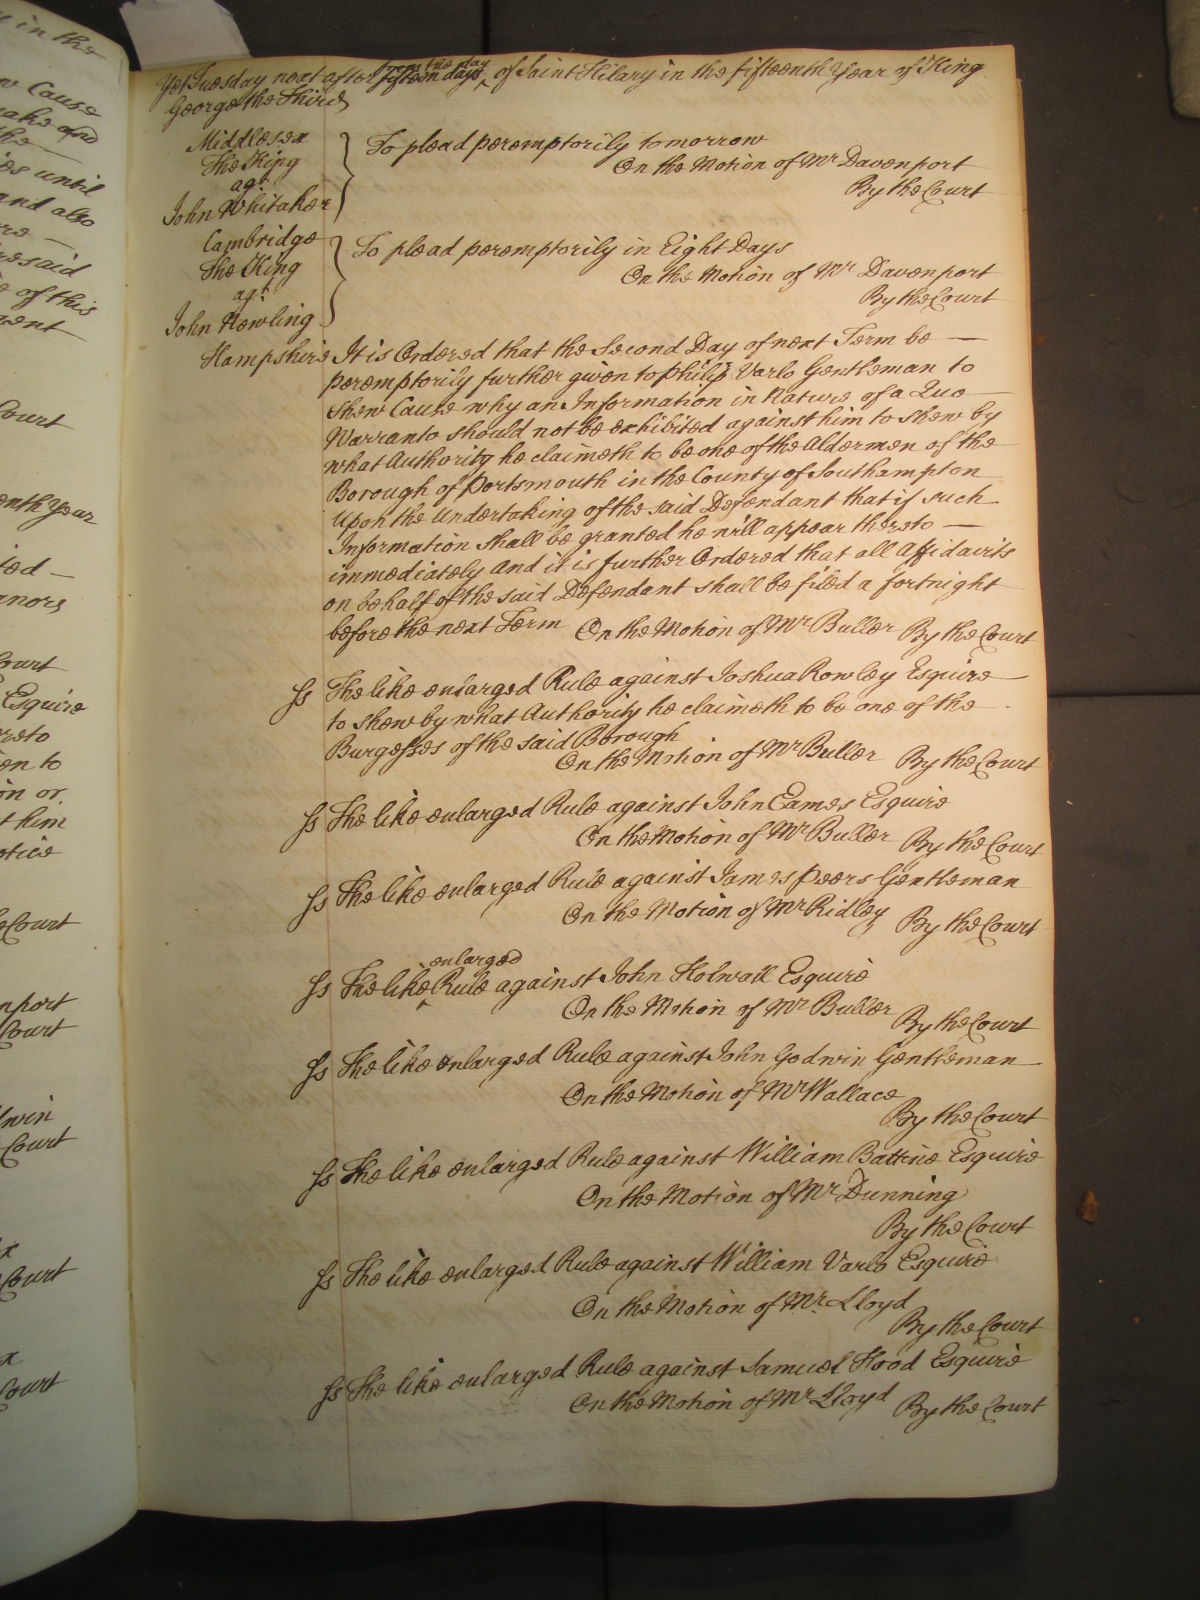 Yet Tuesday next after fifteen days from the day of Saint Hilary in the fifteenth Year of King
George the Third
Middlesex
The King
agt
John Whitaker
To plead peremptorily tomorrow
On the Motion of Mr Davenport
By the Court
Cambridge
The King
agt
John Hewling
To plead peremptorily in Eight Days
On the Motion of Mr Davenport
By the Court
Hampshire It is Ordered that the Second Day of next Term be —
peremptorily further given to Philip Varlo Gentleman to
shew Cause why an Information in Nature of a Quo
Warranto should not be exhibited against him to shew by
what Authority he claimeth to be one of the Aldermen of the
Borough of Portsmouth in the County of Southampton
Upon the Undertaking of the said Defendant that if such
Information shall be granted he will appear thereto —
immediately And it is further Ordered that all Affidavits
on behalf of the said Defendant shall be filed a fortnight
before the next Term On the Motion of Mr Buller By the Court
Ss The like enlarged Rule against Joshua Rowley Esquire
to shew by what Authority he claimeth to be one of the
Burgesses of the said Borough
On the Motion of Mr Buller By the Court
Ss The like enlarged Rule against John Eames Esquire
On the Motion of Mr Buller By the Court
Ss The like enlarged Rule against James Peers Gentleman
On the Motion of Mr Ridley By the Court
Ss The like enlarged Rule against John Holwall Esquire
On the Motion of Mr Buller By the Court
Ss The like enlarged Rule against John Godwin Gentleman
On the Motion of Mr Wallace
By the Court
Ss The like enlarged Rule against William Battine Esquire
On the Motion of Mr Dunning
By the Court
Ss The like enlarged Rule against William Varlo Esquire
On the Motion of Mr Lloyd
By the Court
Ss The like enlarged Rule against Samuel Hood Esquire
On the Motion of Mr Lloyd By the Court